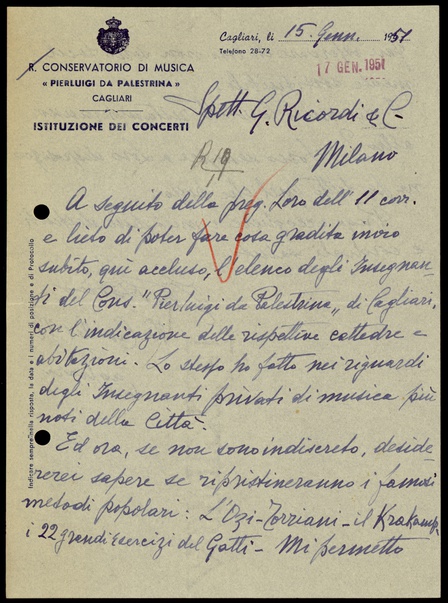 R. CONSERVATORIO DI MUSICA
« PIERLUIGI DA PALESTRINA »
CAGLIARI
ISTITUZIONE DEI CONCERTI
Cagliari, li 15 Genn. 1951
Telefono 28-72
17 GEN. 1951
Spett. G. Ricordi & C.
Milano
R/19
A seguito della preg. Loro dell'11 corr.
e lieto di poter fare cosa gradita invio
subito, qui accluso, l'elenco degli Insegnan-
ti del Cons. "Pierluigi da Palestrina" di Cagliari,
con l'indicazione delle rispettive cattedre e
abitazioni. Lo stesso ho fatto nei riguardi
degli Insegnanti privati di musica più
noti della Città.
Ed ora, se non sono indiscreto, deside-
rerei sapere se ripristineranno i famosi
metodi popolari: L'Ozi-Torriani - il Krakamp,
i 22 grandi Esercizi del Gatti - Mi permetto
Indicare sempre nella risposta, la data e i numeri di posizione e di Protocollo